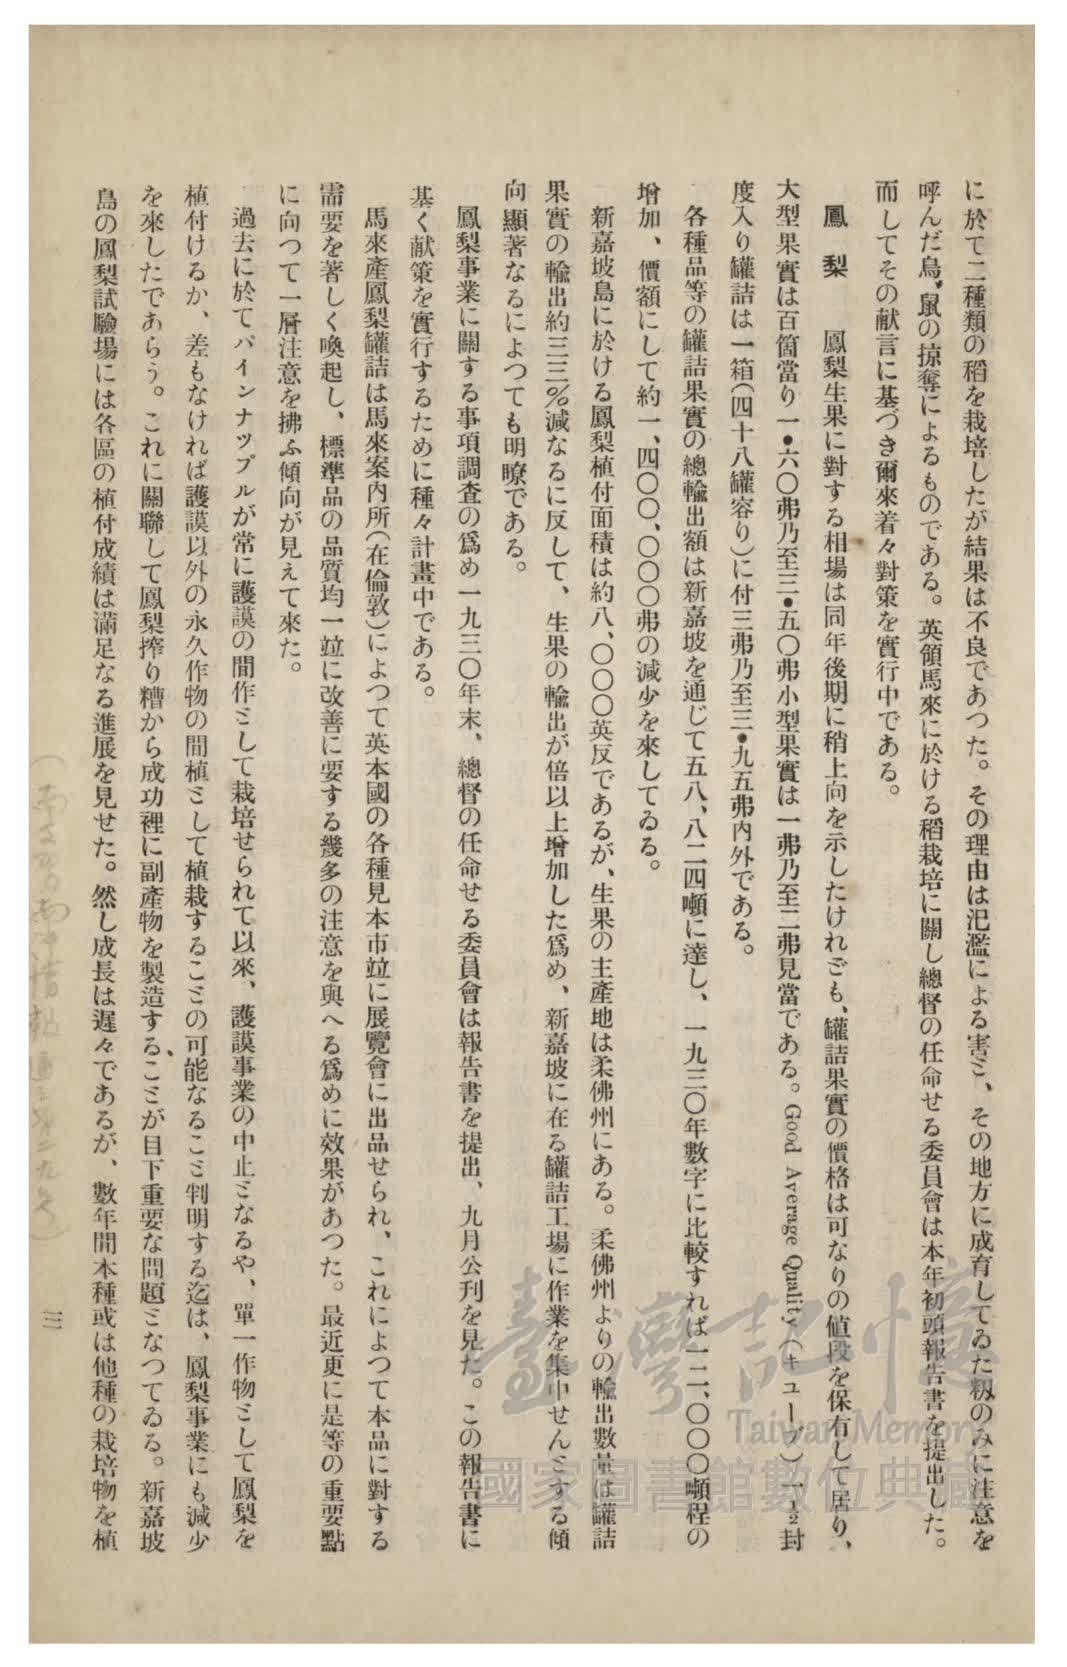 に於て二種類の稻を栽培したが結果は不良であつた。その理由は氾濫による害ミ、その地方に成育してゐた籾のみに注意を
呼んだ鳥、鼠の掠奪によるものである。英領馬來に於ける稻栽培に關し總督の任命せる委員會は本年初頭報告書を提出した。
而してその献言に基づき爾來着々對策を實行中である。
鳳梨　鳳梨生果に對する相場は同年後期に稍上向を示したけれごも、罐詰果實の價格は可なりの値段を保有して居り、
大型果實は百箇當り一•六〇弗乃至三•五〇弗小型果實は一弗乃至二弗見當である。Good Average Quality（キューブ）一½封
度入り罐詰は一箱（四十八罐容り）に付三弗乃至三•九五弗內外である。
各種品等の罐詰果實の總輸出額は新嘉坡を通じて五八、八二四噸に達し、一九三〇年數字に比較すれば一二、〇〇〇噸程の
增加、價額にして約一、四〇〇、〇〇〇弗の減少を來してゐる。
新嘉坡島に於ける鳳梨植付面積は約八、〇〇〇英反であるが、生果の主產地は柔佛州にある。柔佛州よりの輸出數量は罐詰
果實の輸出約三三％減なるに反して、生果の輸出が倍以上增加した爲め、新嘉坡に在る罐詰工場に作業を集中せんミする傾
向顯著なるによつても明瞭である。
鳳梨事業に關する事項調査の爲め一九三〇年末、總督の任命せる委員會は報告書を提出、九月公刊を見た。この報告書に
基く献策を實行するために種々計畫中である。
馬來產鳳梨罐詰は馬來案內所（在倫敦）によつて英本國の各種見本市竝に展覽會に出品せられ、これによつて本品に對する
需要を著しく喚起し、標準品の品質均一竝に改善に要する幾多の注意を與へる爲めに效果があつた。最近更に是等の重要點
に向つて一層注意を拂ふ傾向が見えて來た。
過去に於てパインナツプルが常に護謨の間作ミして栽培せられて以來、護謨事業の中止ミなるや、單一作物ミして鳳梨を
植付けるか、差もなければ護謨以外の永久作物の間植ミして植栽するこミの可能なるこミ判明する迄は、鳳梨事業にも減少
を來したであらう。これに關聯して鳳梨搾り糟から成功裡に副產物を製造するこミが目下重要な問題ミなつてゐる。新嘉坡
島の鳳梨試驗場には各區の植付成績は滿足なる進展を見せた。然し成長は遲々であるが、數年間本種或は他種の栽培物を植
三
臺灣記憶
Taiwan Memory
國家圖書館數位典藏